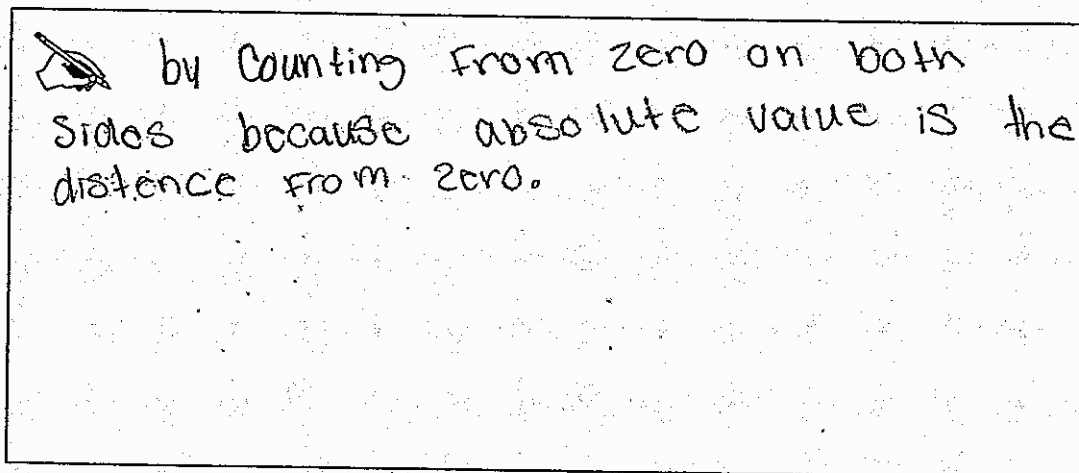 by Counting from zero on both
Sides because absolute value is the
distence from zero.